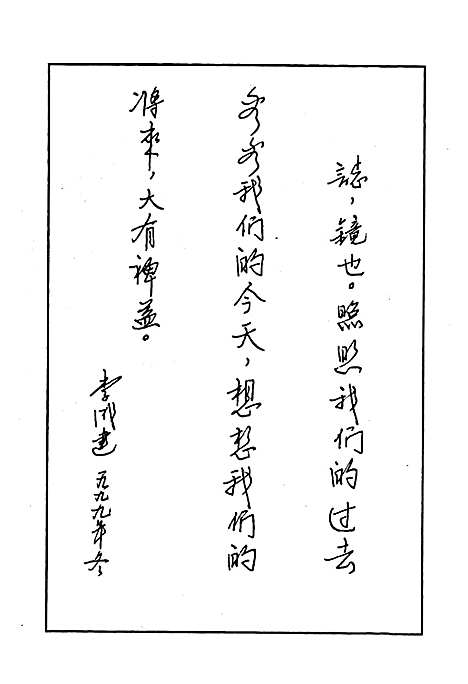 誌，镜也。照照我们的过去
看看我们的今天，想想我们的
将来，大有裨益。
李成建 一九九九年冬